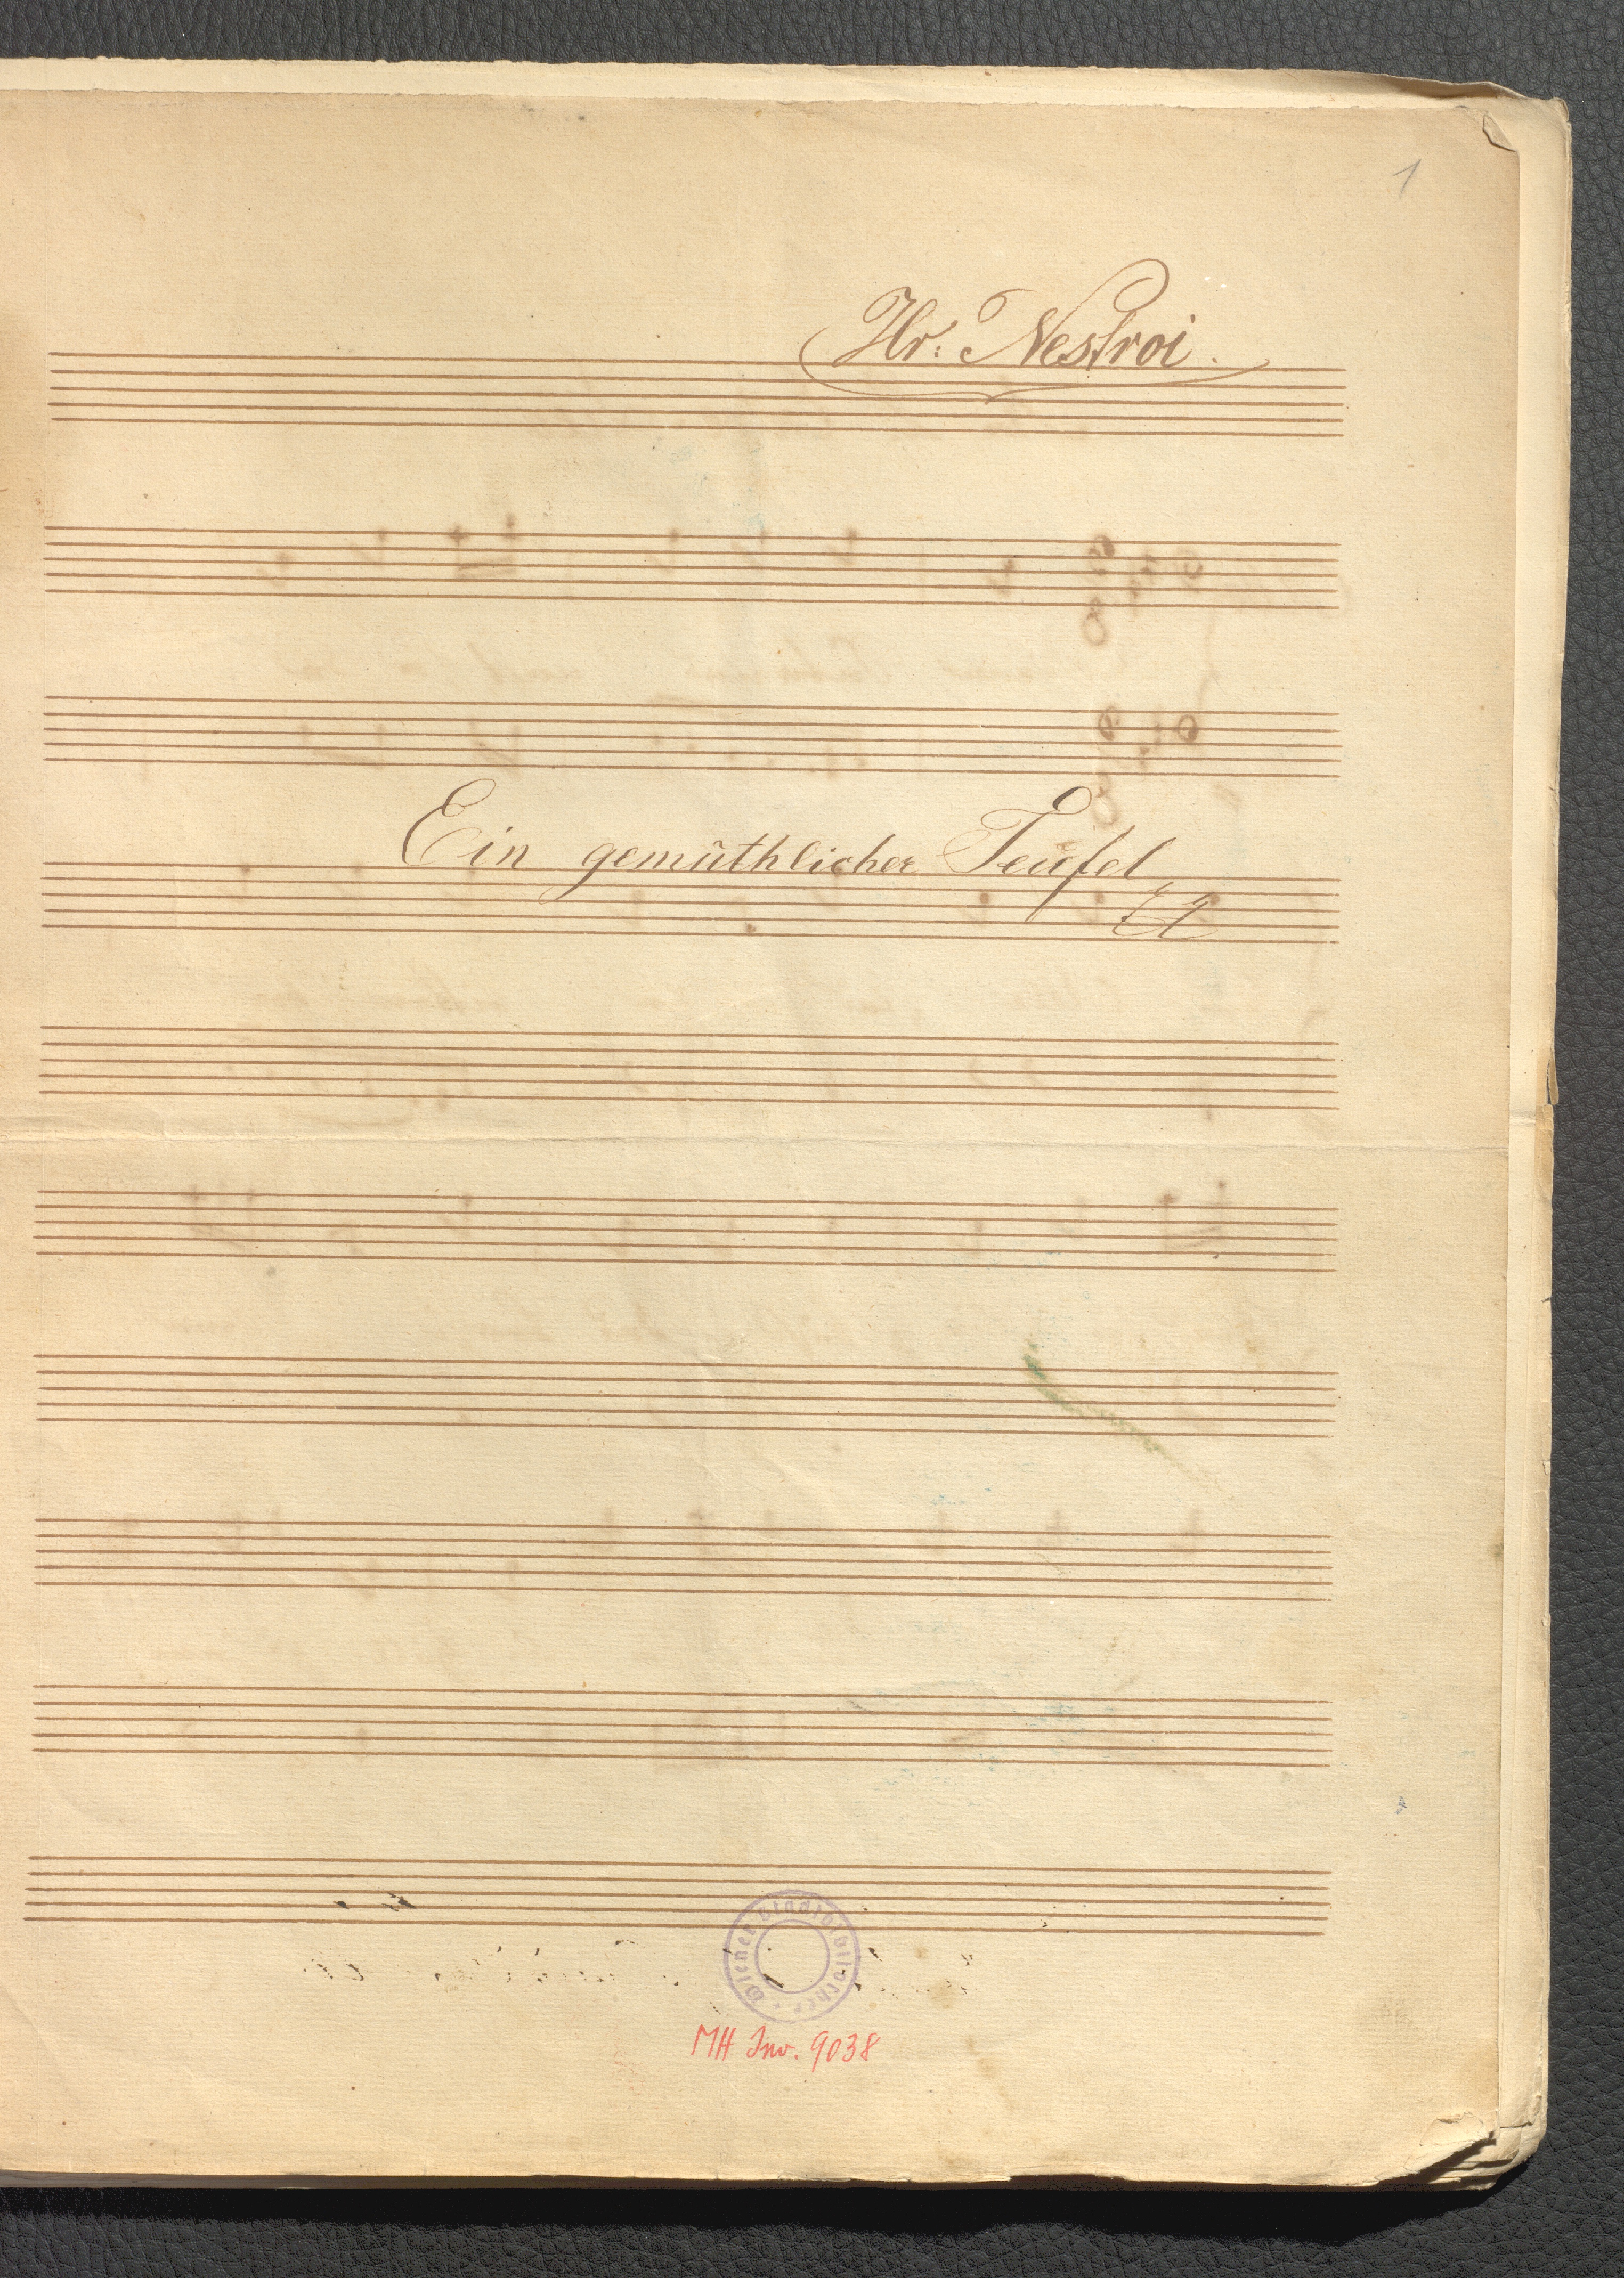 1
Hr: Nestroi.
Ein gemüthlicher Teufel
Wiener Stadtbibliothek
MH Inv. 9038